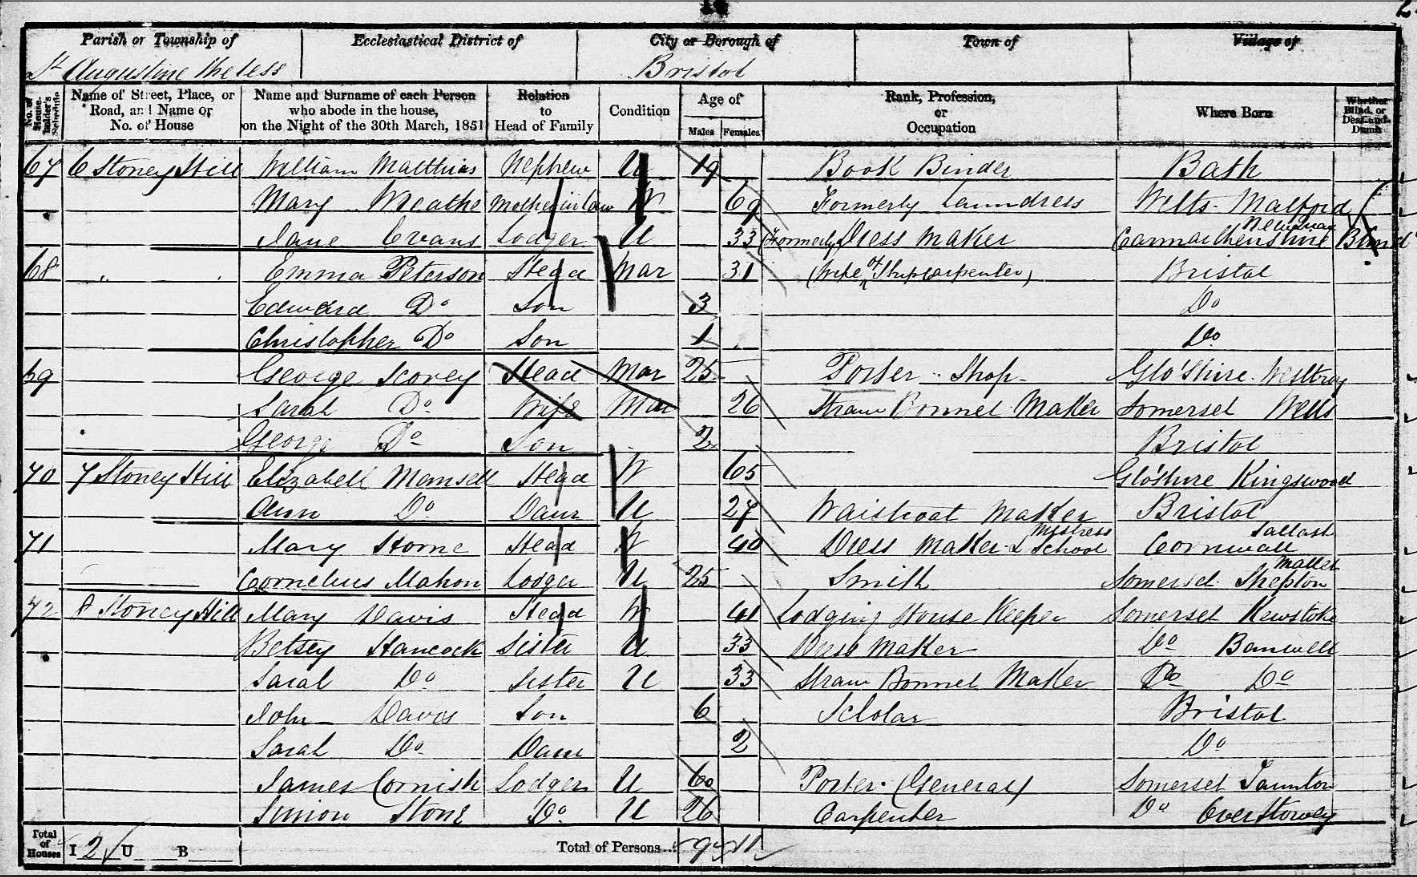 14
Parish or Township of Ecclesiastical District of City or Borough of Town of Village of
St Augustine the Less Bristol
No. of House-holder's Schedule Name of Street, Place, or Road, and Name or No. of House Name and Surname of each Person who abode in the house, on the Night of the 30th March, 1851 Relation to Head of Family Condition Age of Males Females Rank, Profession, or Occupation Where Born Whether Blind, or Deaf-and-Dumb
67 6 Stoney Hill William Matthias Nephew U 19 Book Binder Bath
Mary Meathe Mother in law W 69 Formerly Laundress Wilts. Malford
Jane Evans Lodger U 33 (Formerly) Dress Maker Carmarthenshire Blind
68 " Emma Peterson Head Mar 31 (Wife of Ship Carpenter) Bristol
Edward Do Son 3 Do
Christopher Do Son 1 Do
69 George Scovey Head Mar 25 Porter Shop Glo'shire
Sarah Do Wife Mar 26 Straw Bonnet Maker Somerset Wells
George Do Son 2 Bristol
70 7 Stoney Hill Elizabeth Mansell Head W 65 Glo'shire Kingswood
Ann Do Daur U 27 Waistcoat Maker Bristol
71 Mary Horne Head W 40 Dress Maker & Mistress School Cornwall Saltash
Cornelius Mahon Lodger U 25 Smith Somerset Shepton Mallet
72 8 Stoney Hill Mary Davis Head W 41 Lodging House Keeper Somerset Kewstoke
Betsey Hancock Sister U 33 Dress Maker Do Banwell
Sarah Do Sister U 33 Straw Bonnet Maker Do Do
John Davis Son 6 Scholar Bristol
Sarah Do Daur 2 Do
James Cornish Lodger U 60 Porter (General) Somerset Taunton
Simon Stone Do U 26 Carpenter Do Over Stowey
Total of Houses I 2 U B Total of Persons... 9 11